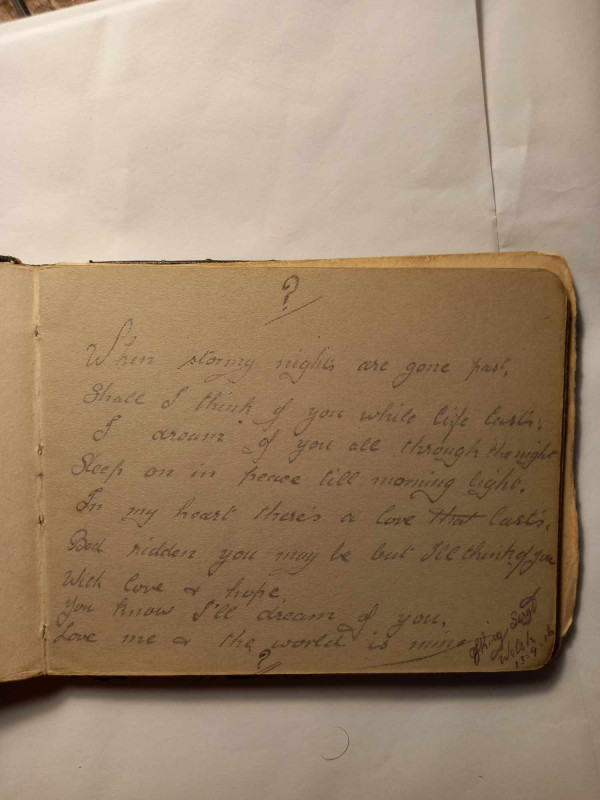 ?
When stormy nights are gone past,
Shall I think of you while life last's,
I dream of you all through the night
Sleep on in peace till morning light.
In my heart there's a love that last's,
Bed ridden you may be but I'll think of you
With love & hope.
You know I'll dream of you,
Love me & the world is mine
?
Sergt
Welsh